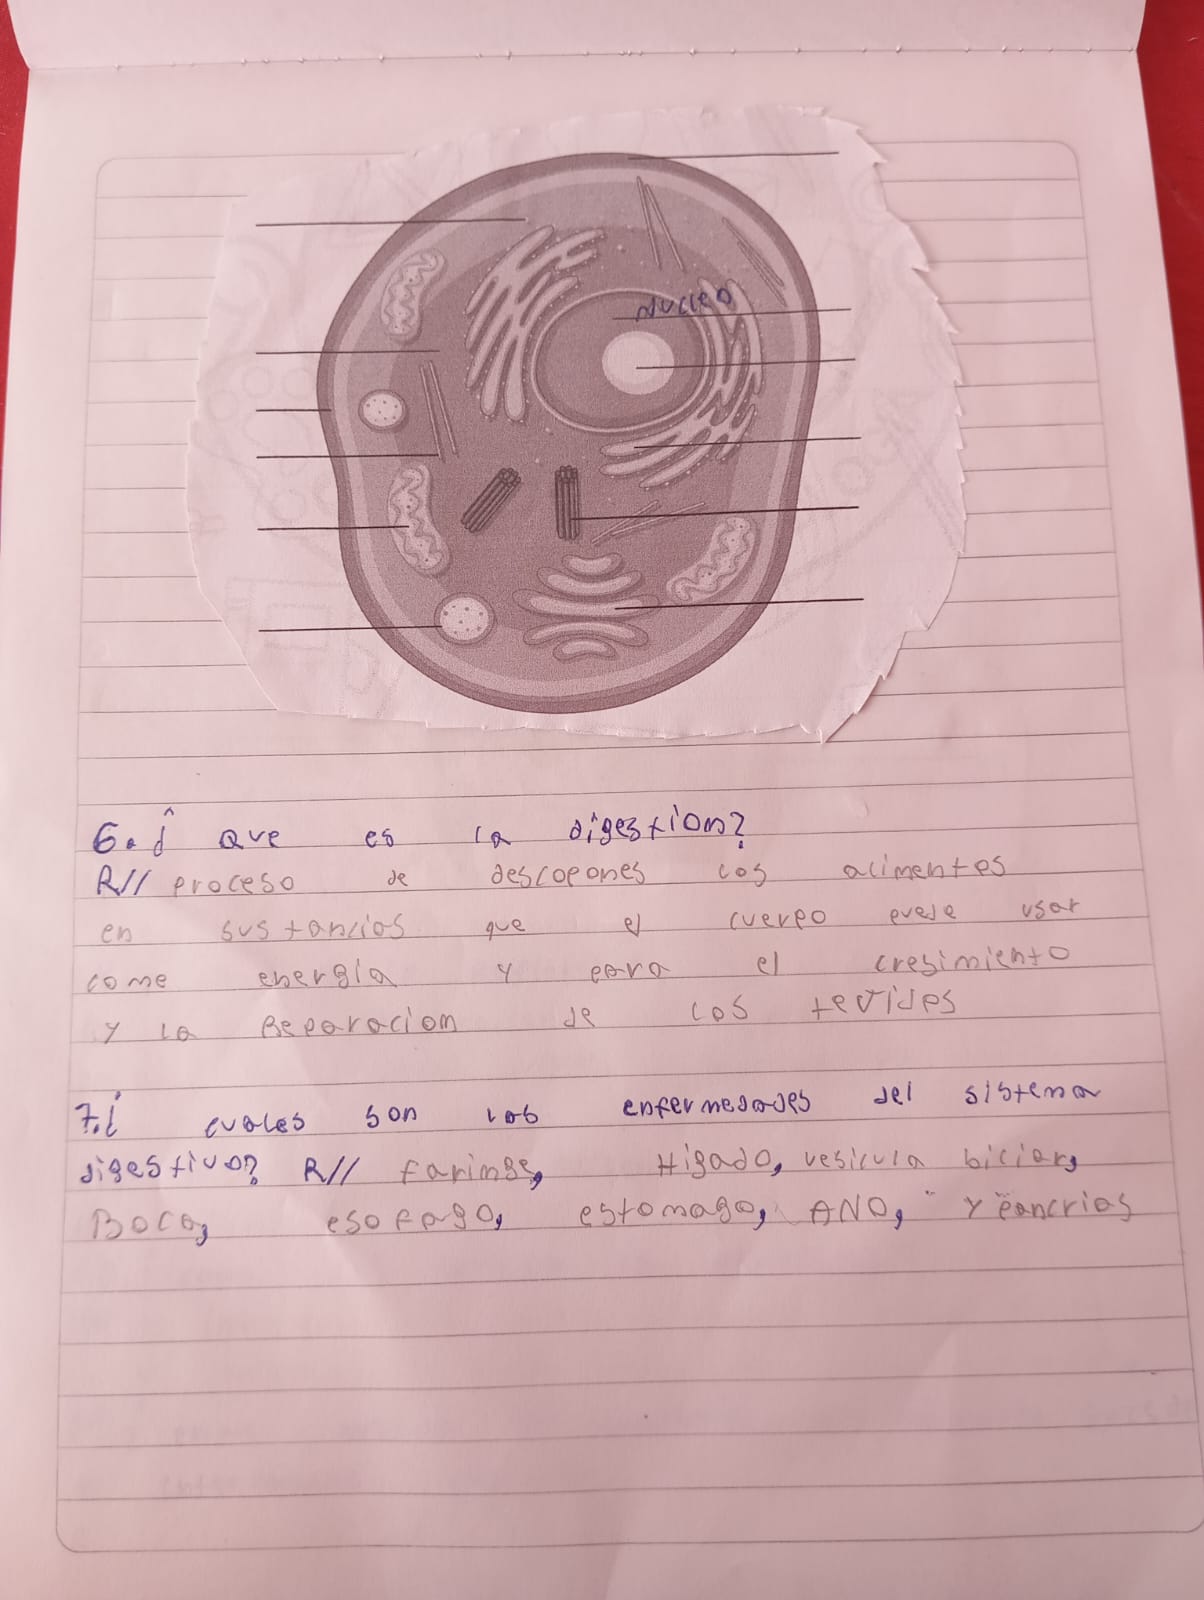 Nucleo
6. ¿ Que es la digestion?
R// proceso de descopones los alimentos
en sustancias que el cuerpo puede usar
come energia y para el cresimiento
y la Reparacion de los tevides
7. ¿ cuales son las enfermedades del sistema
digestivo? R// faringe, Higado, vesicula biciar,
Boca, esofago, estomago, ANO, y pancrias